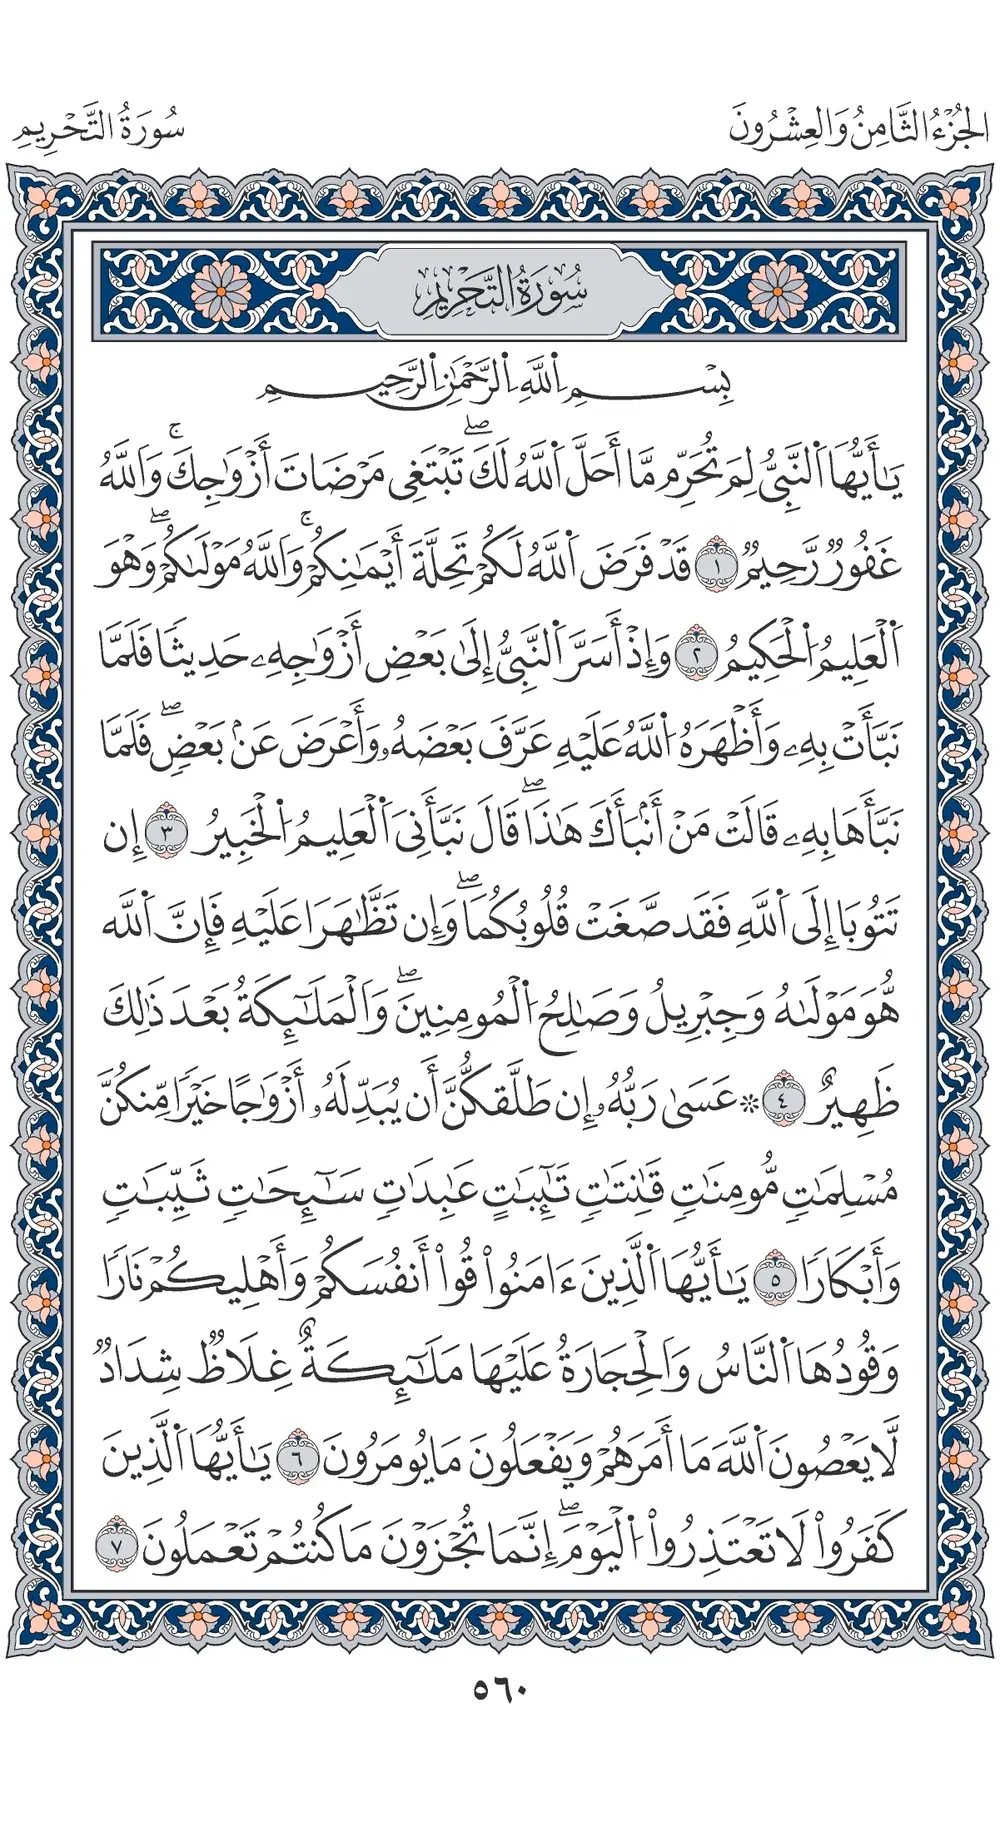 الجُزْءُ الثَّامِنُ وَالعِشْرُونَ
سُورَةُ التَّحْرِيمِ
سُورَةُ التَّحْرِيمِ
بِسْمِ اِ۬للَّهِ اِ۬لرَّحْمَٰنِ اِ۬لرَّحِيمِ
يَٰأَيُّهَا اَ۬لنَّبِيُّ لِمَ تُحَرِّم مَّا أَحَلَّ اَ۬للَّهُ لَكَۖ تَبْتَغِي مَرْضَاتَ أَزْوَٰجِكَۚ وَاَللَّهُ
غَفُورٞ رَّحِيمٞ ١ قَدْ فَرَضَ اَ۬للَّهُ لَكُمْ تَحِلَّةَ أَيْمَٰنِكُمْۚ وَاَللَّهُ مَوْلَىٰكُمْۖ وَهْوَ
اَ۬لْعَلِيمُ اُ۬لْحَكِيمُ ٢ وَإِذْ أَسَرَّ اَ۬لنَّبِيُّ إِلَىٰ بَعْضِ أَزْوَٰجِهِۦ حَدِيثٗا فَلَمَّا
نَبَّأَتْ بِهِۦ وَأَظْهَرَهُ اُ۬للَّهُ عَلَيْهِ عَرَّفَ بَعْضَهُۥ وَأَعْرَضَ عَنۢ بَعْضٖۖ فَلَمَّا
نَبَّأَهَا بِهِۦ قَالَتْ مَنْ أَنۢبَأَكَ هَٰذَاۖ قَالَ نَبَّأَنِيَ اَ۬لْعَلِيمُ اُ۬لْخَبِيرُ ٣ إِن
تَتُوبَا إِلَى اَ۬للَّهِ فَقَد صَّغَتْ قُلُوبُكُمَاۖ وَإِن تَظَّٰهَرَا عَلَيْهِ فَإِنَّ اَ۬للَّه
هُّوَ مَوْلَىٰهُ وَجِبْرِيلُ وَصَٰلِحُ اُ۬لْمُومِنِينَۖ وَاَلْمَلَٰٓئِكَةُ بَعْدَ ذَٰلِكَ
ظَهِيرٌ ٤ ۞ عَسَىٰ رَبُّهُۥ إِن طَلَّقكُّنَّ أَن يُبَدِّلَهُۥ أَزْوَٰجًا خَيْرٗا مِّنكُنَّ
مُسْلِمَٰتٖ مُّومِنَٰتٖ قَٰنِتَٰتٖ تَٰٓئِبَٰتٍ عَٰبِدَٰتٖ سَٰٓئِحَٰتٖ ثَيِّبَٰتٖ
وَأَبْكَارٗا ٥ يَٰأَيُّهَا اَ۬لَّذِينَ ءَامَنُواْ قُواْ أَنفُسَكُمْ وَأَهْلِيكُمْ نَارٗا
وَقُودُهَا اَ۬لنَّاسُ وَاَلْحِجَارَةُ عَلَيْهَا مَلَٰٓئِكَةٌ غِلَاظٞ شِدَادٞ
لَّا يَعْصُونَ اَ۬للَّهَ مَا أَمَرَهُمْ وَيَفْعَلُونَ مَا يُومَرُونَ ٦ يَٰأَيُّهَا اَ۬لَّذِينَ
كَفَرُواْ لَا تَعْتَذِرُواْ اُ۬لْيَوْمَۖ إِنَّمَا تُجْزَوْنَ مَا كُنتُمْ تَعْمَلُونَ ٧
٥٦٠